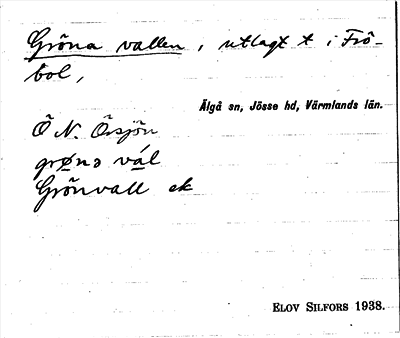 Gröna vallen, utlagt t i Frö-
bol,
Älgå sn, Jösse hd, Värmlands län.
Ö N. Örsjön
grø̱nə vá̱l
Grönvall ek
ELOV SILFORS 1938.